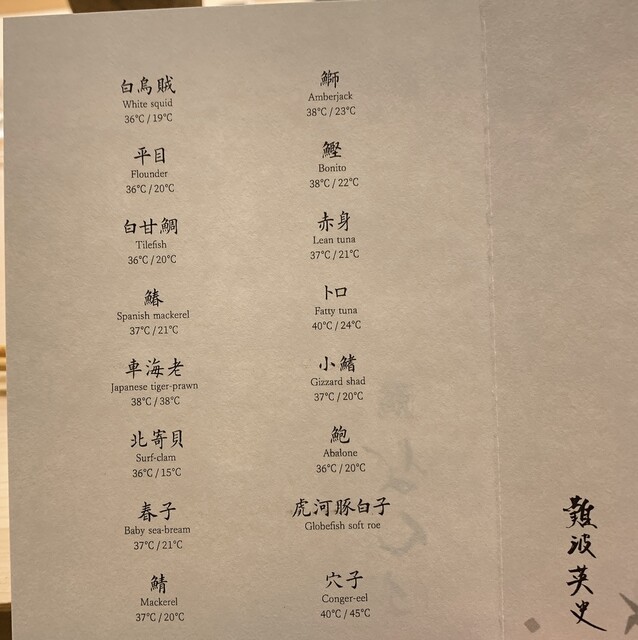 白烏賊
White squid
36°C / 19°C
平目
Flounder
36°C / 20°C
白甘鯛
Tilefish
36°C / 20°C
鰆
Spanish mackerel
37°C / 21°C
車海老
Japanese tiger-prawn
38°C / 38°C
北寄貝
Surf-clam
36°C / 15°C
春子
Baby sea-bream
37°C / 21°C
鯖
Mackerel
37°C / 20°C
鰤
Amberjack
38°C / 23°C
鰹
Bonito
38°C / 22°C
赤身
Lean tuna
37°C / 21°C
トロ
Fatty tuna
40°C / 24°C
小鰭
Gizzard shad
37°C / 20°C
鮑
Abalone
36°C / 20°C
虎河豚白子
Globefish soft roe
穴子
Conger-eel
40°C / 45°C
難波英史